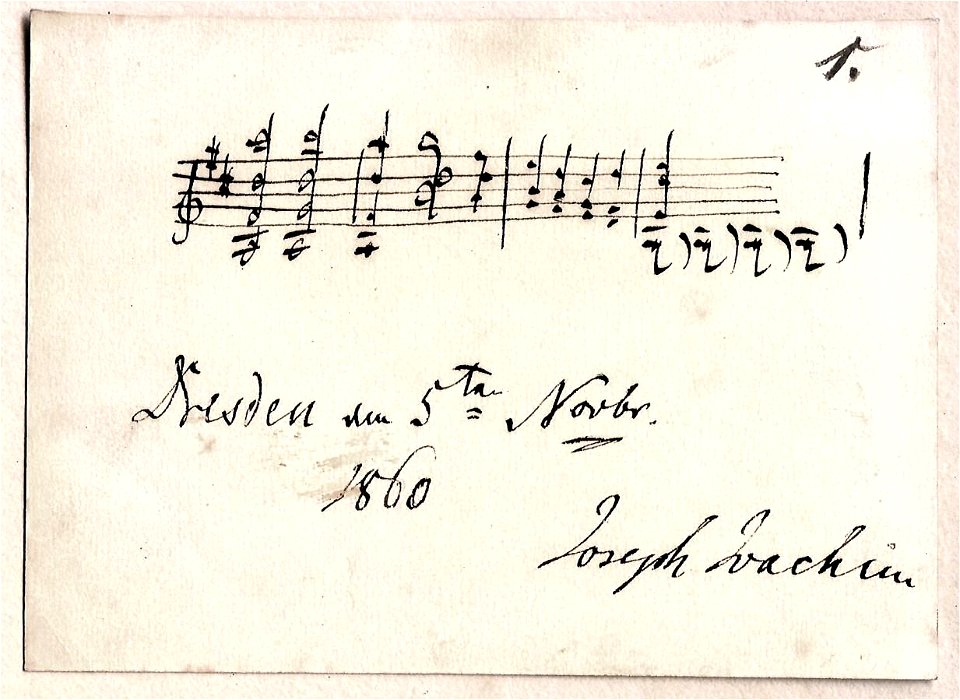 1.
Dresden den 5ten Novbr.
1860
Joseph Joachim